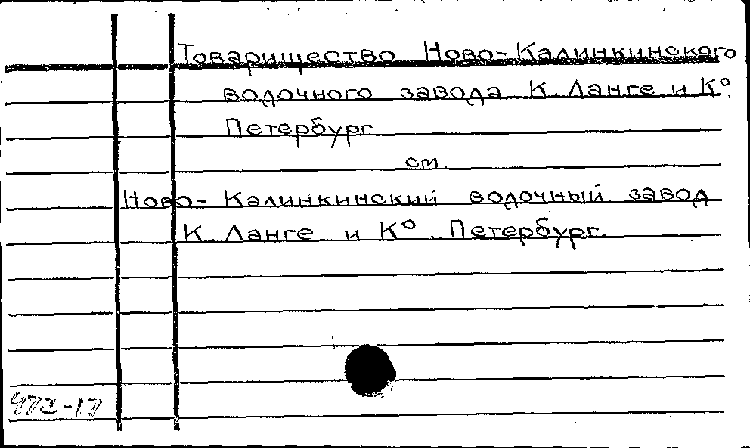 Товарищество Ново-Калинкинского
водочного завода К. Ланге и К⁰.
Петербург
см.
Ново-Калинкинский водочный завод
К. Ланге и К⁰. Петербург.
972-17